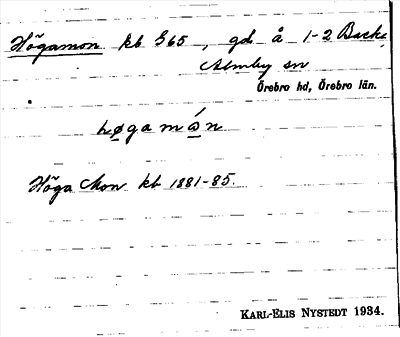 Högamon kb S65, gd å 1-2 Backa,
Almby sn
Örebro hd, Örebro län.
høgamón
Höga Mon kb 1881-85.
KARL-ELIS NYSTEDT 1934.